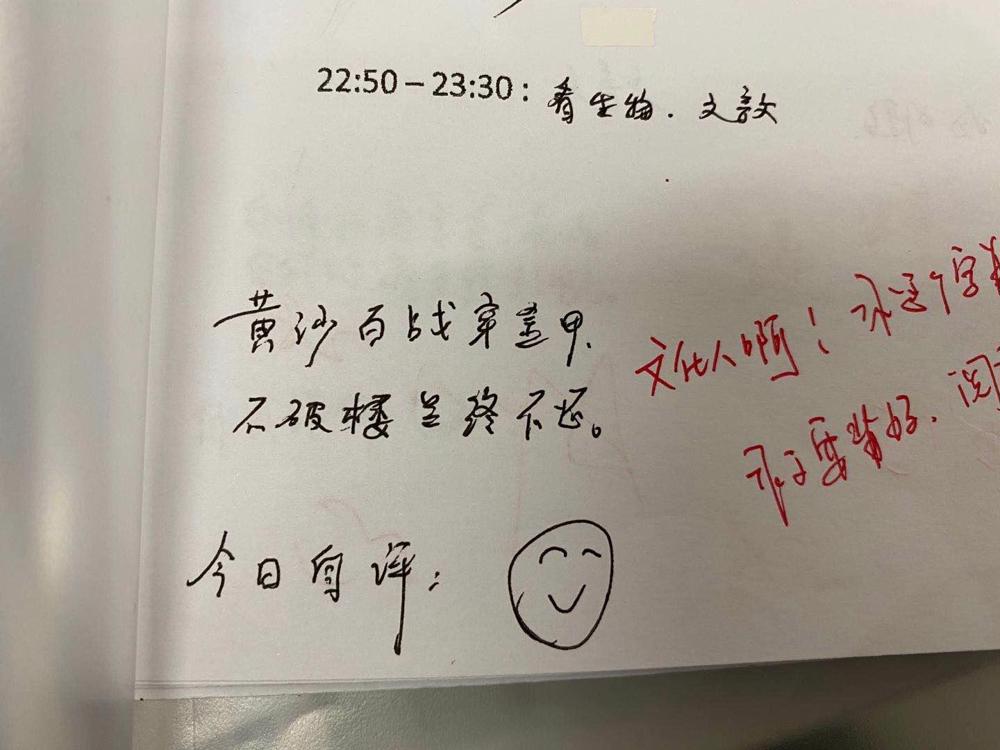 22:50－23:30：看生物.文言文
黄沙百战穿金甲.
不破楼兰终不还。
今日自评：
文化人啊！
要背好.